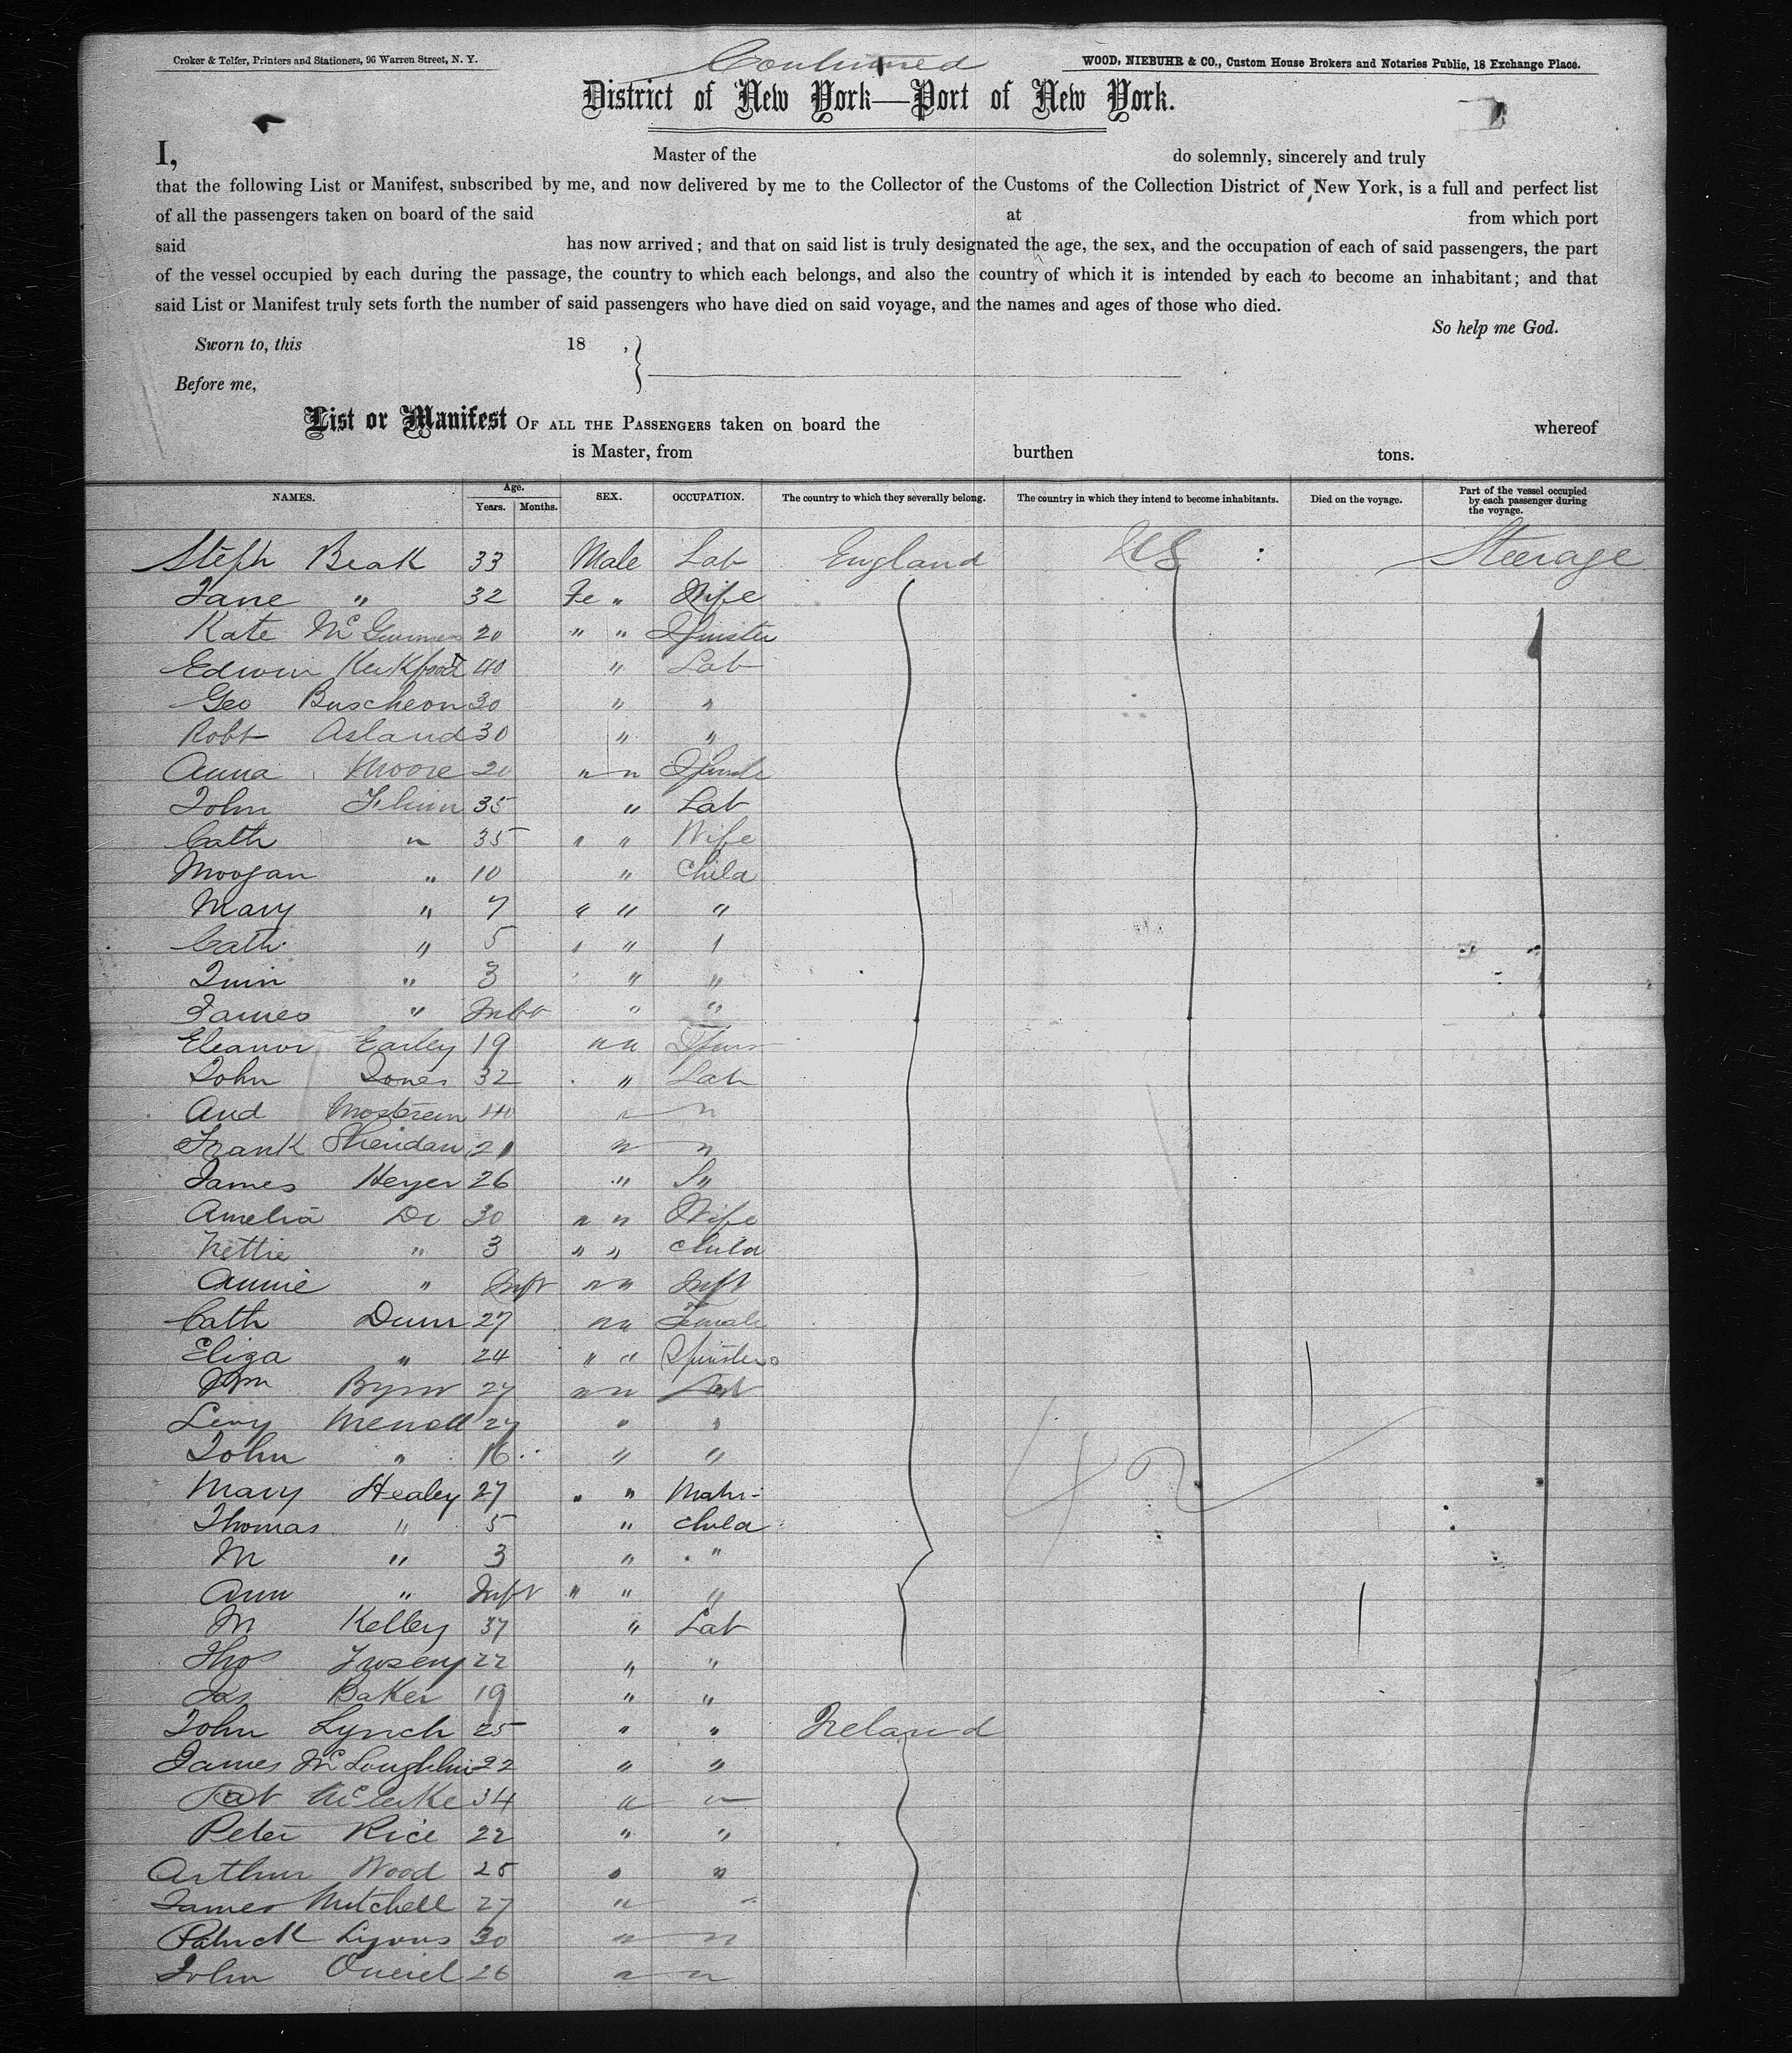 Croker & Telfer, Printers and Stationers, 96 Warren Street, N. Y.
Continued
WOOD, NIEBUHR & CO., Custom House Brokers and Notaries Public, 18 Exchange Place.
District of New York—Port of New York.
I, Master of the do solemnly, sincerely and truly
that the following List or Manifest, subscribed by me, and now delivered by me to the Collector of the Customs of the Collection District of New York, is a full and perfect list
of all the passengers taken on board of the said at from which port
said has now arrived; and that on said list is truly designated the age, the sex, and the occupation of each of said passengers, the part
of the vessel occupied by each during the passage, the country to which each belongs, and also the country of which it is intended by each to become an inhabitant; and that
said List or Manifest truly sets forth the number of said passengers who have died on said voyage, and the names and ages of those who died.
So help me God.
Sworn to, this 18 ,
Before me,
List or Manifest OF ALL THE PASSENGERS taken on board the whereof
is Master, from burthen tons.
NAMES. Age. Years. Months. SEX. OCCUPATION. The country to which they severally belong. The country in which they intend to become inhabitants. Died on the voyage. Part of the vessel occupied by each passenger during the voyage.
Steph Beak 33 Male Lab England US Steerage
Jane " 32 Fe " Wife
Kate 20 " " Spinster
Edwin 40 " Lab
Geo Buscheon 30 " "
Robt Asland 30 " "
Anna Moore 20 " "
John Flinn 35 " Lab
Cath " 35 " " Wife
Morgan " 10 " Child
Mary " 7 " " "
Cath " 5 " "
" 3 " "
James " " "
Eleanor Earley 19 " " Spins
John Jones 32 " Lab
And 40 " "
Frank Sheridan 21 " "
James Heyer 26 "
Amelia Do 30 " " Wife
Nettie " 3 " " Child
Annie " Inft " " Inft
Cath Dunn 27 " " Female
Eliza " 24 " " Spinsters
Wm 27 " " Lab
Levy 27 " "
John " 16 " "
Mary Healey 27 " " Matr
Thomas " 5 " Child
M " 3 " "
Ann " Inft " " "
M Kelley 37 " Lab
Thos 22 " "
Jas Baker 19 " "
John Lynch 25 " " Ireland
James McLoughlin 22 " "
Pat 34 " "
Peter Rice 22 " "
Arthur Wood 25 " "
James Mitchell 27 " "
Patrick Lyons 30 " "
John Oneiel 26 " "